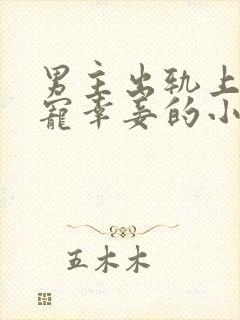 男主出轨上
宠幸妾的小
五木木